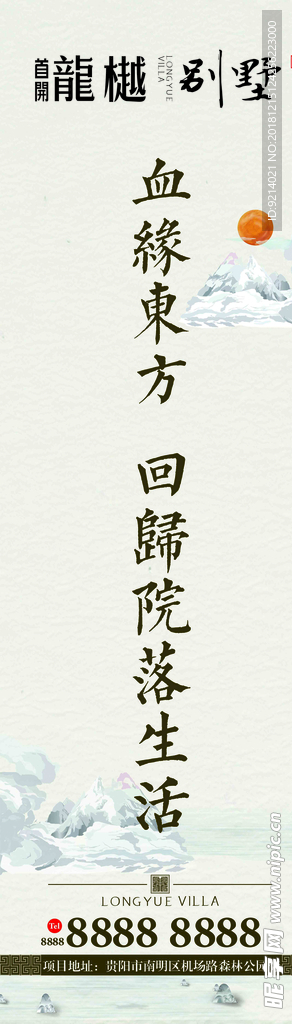 首開 龍樾 LONGYUE VILLA 别墅
血緣東方 回歸院落生活
LONGYUE VILLA
Tel 8888 8888 8888
项目地址：贵阳市南明区机场路森林公园
昵享网 www.nipic.cn
ID:9214021 NO:20181215124316223000